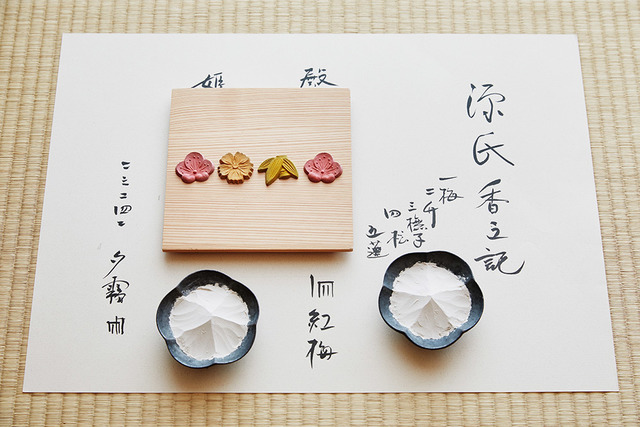 源氏香之記
一梅
二竹
三撫子
四松
五蓮
殿
紅梅
姫
二三二四二 夕霧